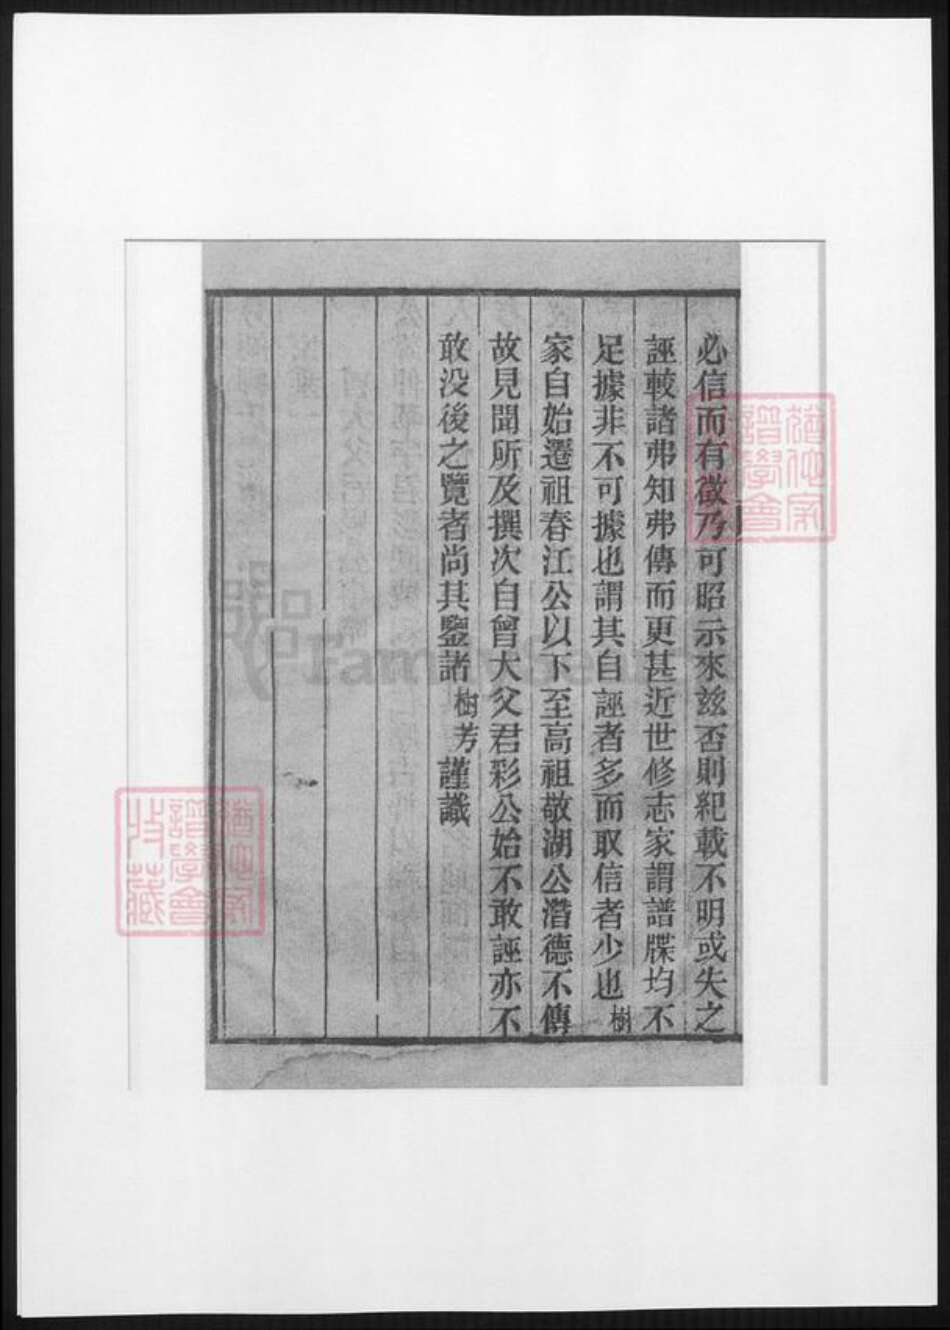 必信而有徵乃可昭示來玆否則紀載不明或失之
誣較諸弗知弗傳而更甚近世修志家謂譜牒均不
足據非不可據也謂其自誣者多而取信者少也樹
家自始遷祖春江公以下至高祖敬湖公潛德不傳
故見聞所及撰次自曾大父君彩公始不敢誣亦不
敢没後之覽者尚其鑒諸樹芳謹識
譜學會
收藏